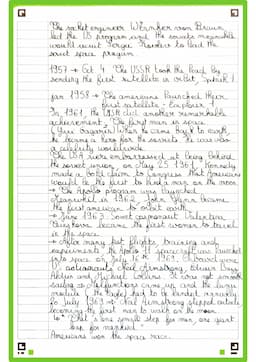 The rocket engineer Wernher von Braun
led the US program and the soviets meanwhile
would recruit Sergei to lead the
soviet space program
1957 → Oct 4 The USSR took the lead by
sending the first satellite in orbit, Sputnik 1
Jan 1958 → The americans launched their
first satellite - Explorer 1
In 1961, the USSR did another remarkable
achievement, The first man in space
(Yuri Gagarin) When he came back to earth,
he became a hero for the soviets. He was also
a celebrity worldwide
The USA were embarrassed at being behind
the soviet union, on May 25 1961, Kennedy
made a bold claim to Congress that Americans
would be the first to land a man on the moon
→ The Apollo program was launched
Meanwhile in 1962, John Glenn became
the first american to orbit earth
→ June 1963 Soviet cosmonaut Valentina
became the first woman to travel
in the space
→ After many test flights, training and
experiments, The Apollo 11 spacecraft was launched
into space on July 16th 1969. Onboard were
astronauts Neil Armstrong, Edwin Buzz
Aldrin and Michael Collins. It was not smooth
sailing → Malfunctions came up, and the lunar
module (the Eagle) had to be landed manually
July 1969 → Neil Armstrong stepped outside
becoming the first man to walk on the moon
↳ "That's one small step for man, one giant
leap for mankind."
Americans won the space race.